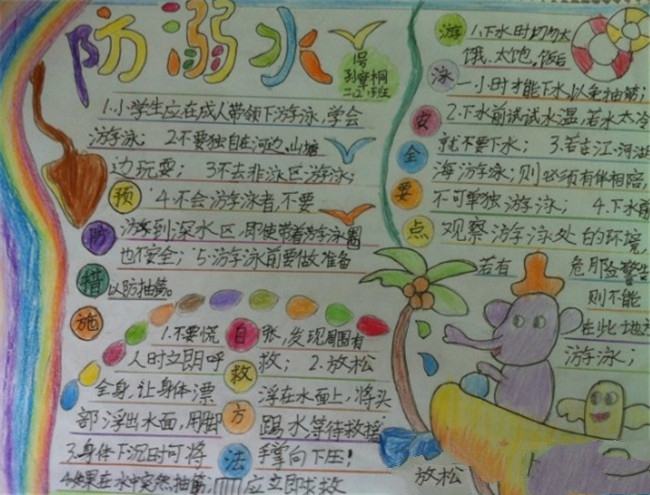 防溺水
1号
二(2)班
1.小学生应在成人带领下游泳,学会
游泳; 2.不要独自在河边、山塘
边玩耍; 3.不去非泳区游泳;
4.不会游泳者,不要
游到深水区,即使带着游泳圈
也不安全; 5.游泳前要做准备
以防抽筋。
预防措施
1.不要慌张,发现周围有
人时立即呼救; 2.放松
全身,让身体漂浮在水面上,将头
部浮出水面,用脚踢水等待救援
3.身体下沉时可将手掌向下压!
4.如果在水中突然抽筋,应立即求救
自救方法
游泳安全要点
1.下水时切勿太
饿、太饱,饭后
一小时才能下水以免抽筋;
2.下水前试试水温,若水太冷
就不要下水; 3.若在江、河、湖
海游泳;则必须有伴相陪,
不可单独游泳; 4.下水前
观察游泳处的环境,
若有危
险警告
则不能
在此地方
游泳;
放松